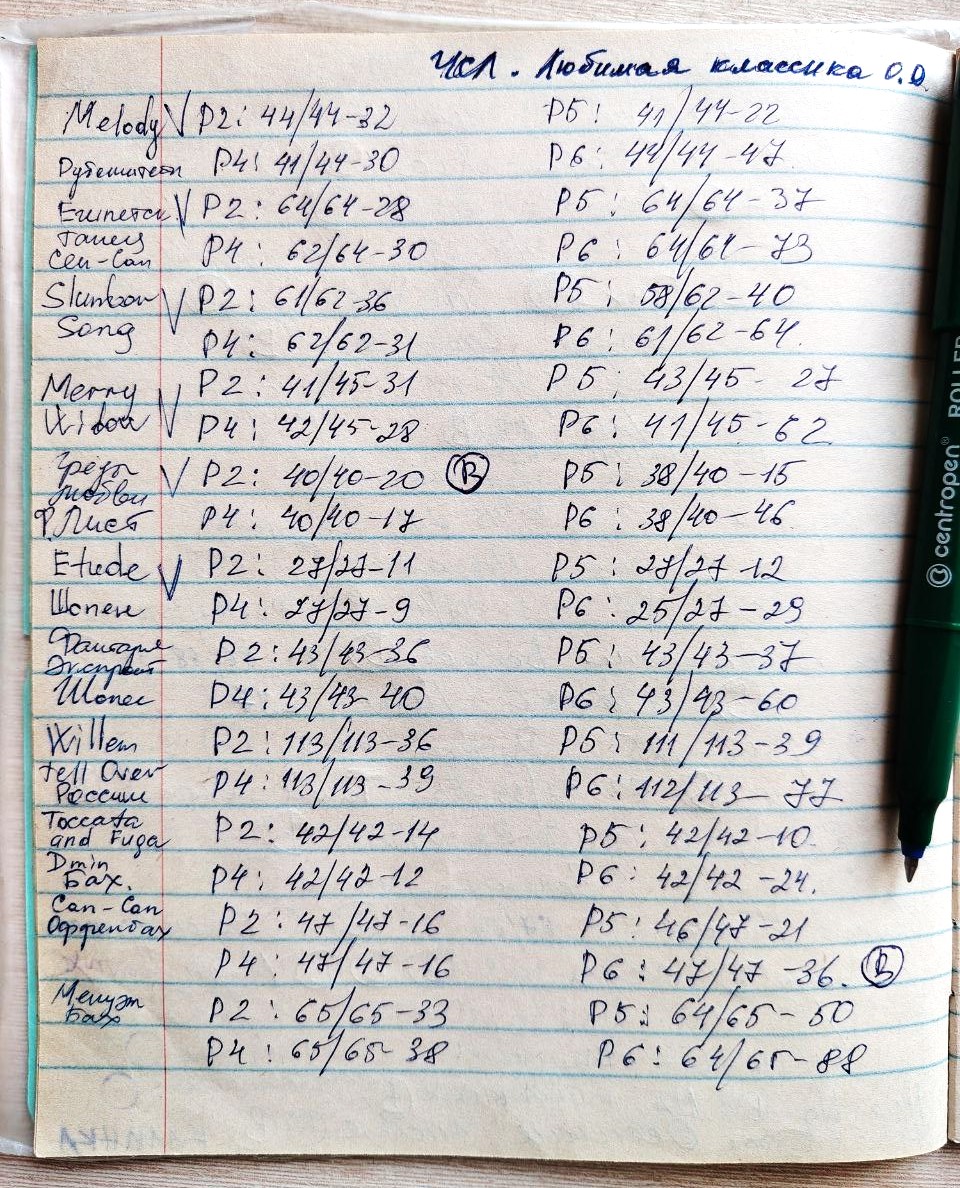 ЧСЛ. Любимая классика О.Д.
Melody V P2: 44/44-32 P5: 41/44-22
Рубенштейн P4: 41/44-30 P6: 44/44-47
Египетск. V P2: 64/64-28 P5: 64/64-37
Танец
Сен-Сан P4: 62/64-30 P6: 64/64-73
Slumber V P2: 61/62-36 P5: 58/62-40
Song P4: 62/62-31 P6: 61/62-64.
Merry V P2: 41/45-31 P5: 43/45-27
Widow P4: 42/45-28 P6: 41/45-62
Грезы V P2: 40/40-20 В P5: 38/40-15
любви
Ф. Лист P4: 40/40-17 P6: 38/40-46
Etude V P2: 27/27-11 P5: 27/27-12
Шопен P4: 27/27-9 P6: 25/27-29
P2: 43/43-36 P5: 43/43-37
Экспромт
Шопен P4: 43/43-40 P6: 43/43-60
Willem P2: 113/113-36 P5: 111/113-39
tell Over P4: 113/113-39 P6: 112/113-77
Россини
Toccata P2: 42/42-14 P5: 42/42-10
and Fuga
Dmin P4: 42/42-12 P6: 42/42-24.
Бах.
Can-Can P2: 47/47-16 P5: 46/47-21
Оффенбах
P4: 47/47-16 P6: 47/47-36. В
Менуэт P2: 65/65-33 P5: 64/65-50
Бах
P4: 65/65-38 P6: 64/65-88
centropen® ROLLER